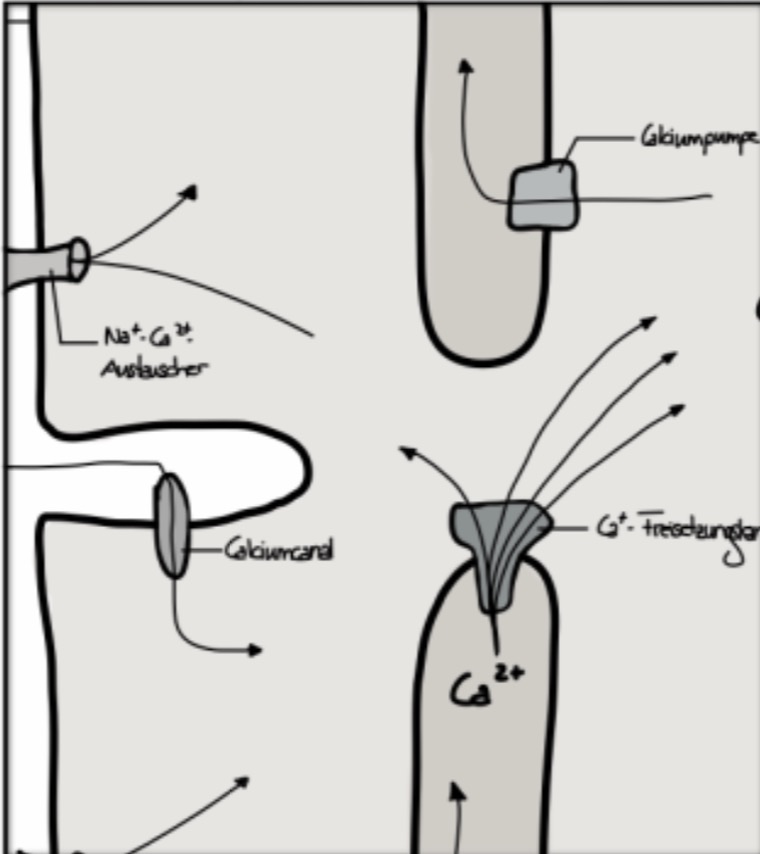 Calciumpumpe
Na⁺-Ca²⁺-
Austauscher
Calciumcanal
Ca⁺-Freisetzungskan
Ca²⁺